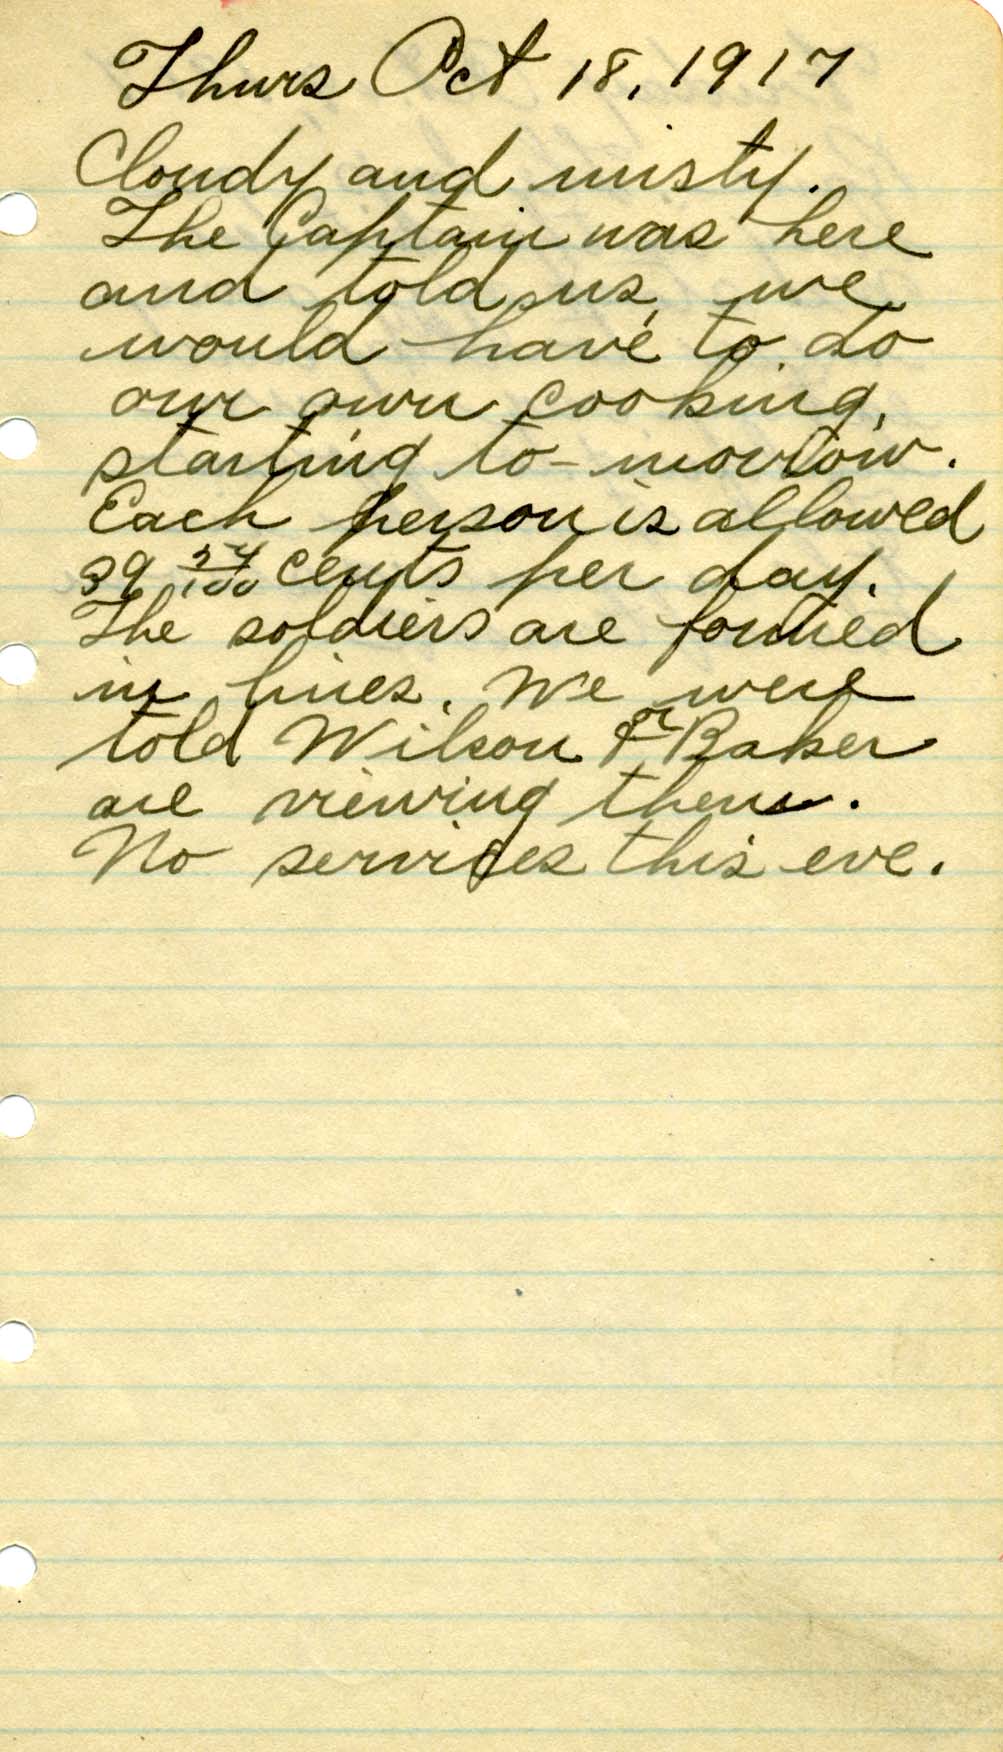 Thurs Oct 18, 1917
Cloudy and misty.
The Captain was here
and told us, we
would have to do
our own cooking,
starting to-morrow.
Each person is allowed
39 24/100 cents per day.
The soldiers are formed
in lines. We were
told Wilson or Baker
are viewing them.
No services this eve.